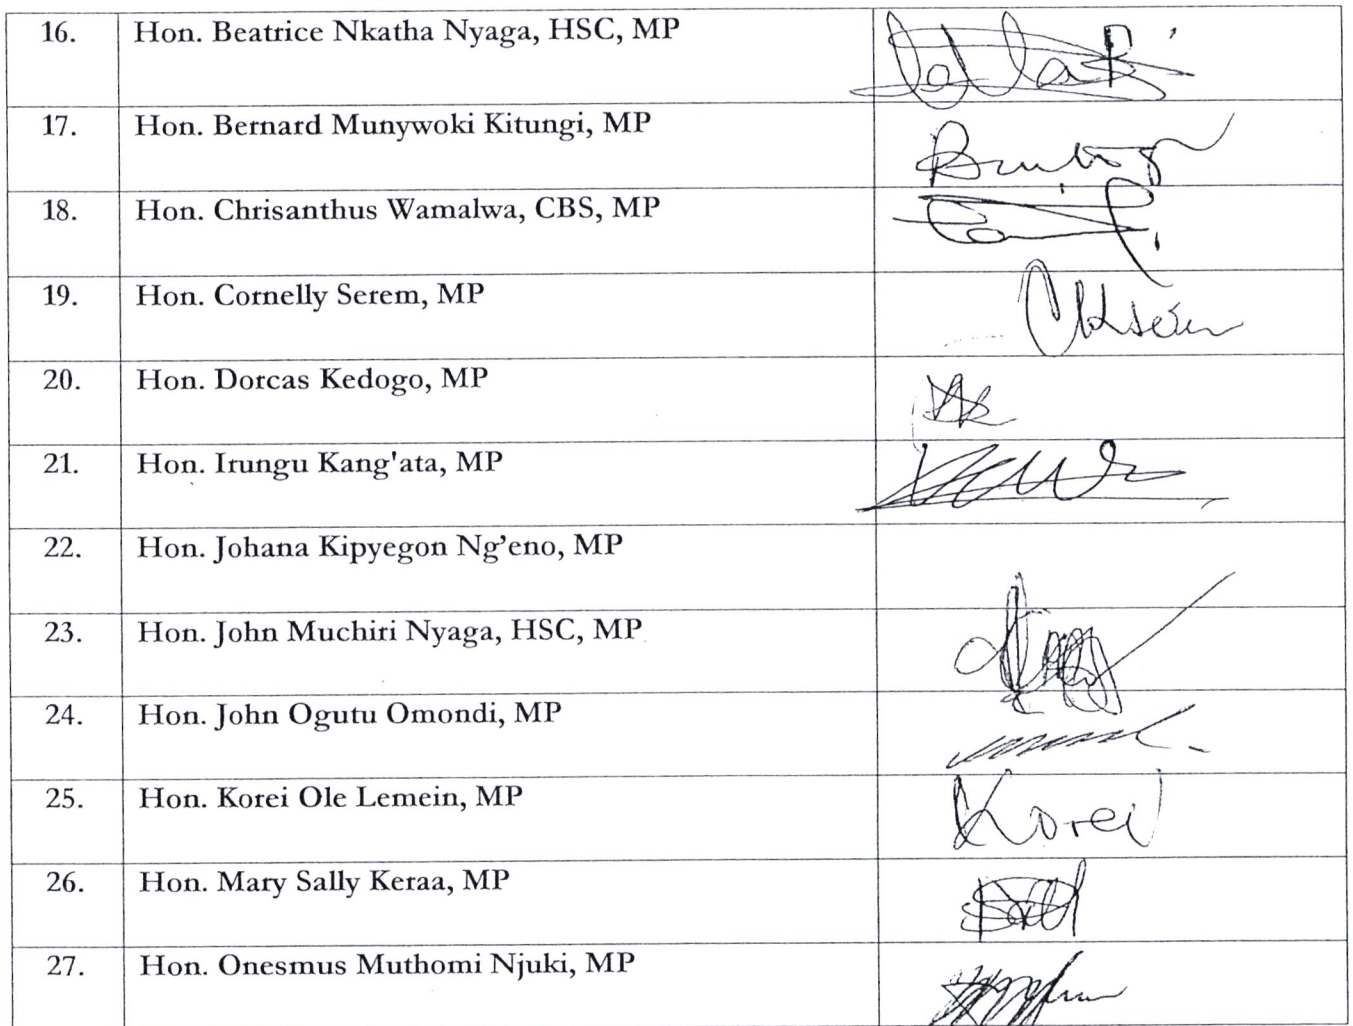 16. Hon. Beatrice Nkatha Nyaga, HSC, MP
17. Hon. Bernard Munywoki Kitungi, MP
18. Hon. Chrisanthus Wamalwa, CBS, MP
19. Hon. Cornelly Serem, MP
20. Hon. Dorcas Kedogo, MP
21. Hon. Irungu Kang'ata, MP
22. Hon. Johana Kipyegon Ng’eno, MP
23. Hon. John Muchiri Nyaga, HSC, MP
24. Hon. John Ogutu Omondi, MP
25. Hon. Korei Ole Lemein, MP Korei
26. Hon. Mary Sally Keraa, MP
27. Hon. Onesmus Muthomi Njuki, MP